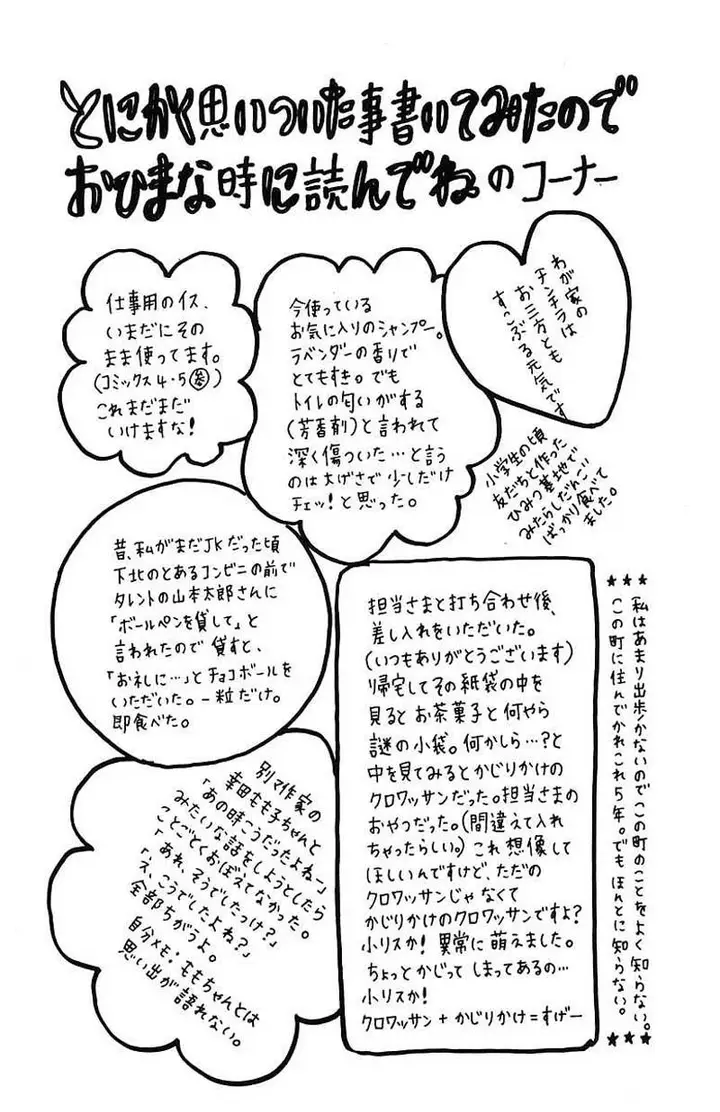 とにかく思いついた事書いてみたので
おひまな時に読んでねのコーナー
わが家の
チンチラは
お三方とも
すっぶる元気です
今使っている
お気に入りのシャンプー。
ラベンダーの香りで
とてもすき。でも
トイレの匂いがする
(芳香剤)と言われて
深く傷ついた…と言う
のは大げさで少しだけ
チェッ!と思った。
仕事用のイス、
いまだにその
まま使ってます。
(コミックス4・5参)
これまだまだ
いけますな!
小学生の頃
友だちと作った
ひみつ基地で
みたらしだんご
ばっかり食べて
ました。
昔、私がまだJKだった頃
下北のとあるコンビニの前で
タレントの山本太郎さんに
「ボールペンを貸して」と
言われたので貸すと、
「お礼に…」とチョコボールを
いただいた。一粒だけ。
即食べた。
★★★
私はあまり出歩かないのでこの町のことをよく知らない。
この町に住んでかれこれ5年。でもほんとに知らない。
★★★
担当さまと打ち合わせ後、
差し入れをいただいた。
(いつもありがとうございます)
帰宅してその紙袋の中を
見るとお茶菓子と何やら
謎の小袋。何かしら…?と
中を見てみるとかじりかけの
クロワッサンだった。担当さまの
おやつだった。(間違えて入れ
ちゃったらしい。)これ想像して
ほしいんですけど、ただの
クロワッサンじゃなくて
かじりかけのクロワッサンですよ?
小リスか!異常に萌えました。
ちょっとかじってしまってあるの…
小リスか!
クロワッサン+かじりかけ=すげー
別マ作家の
幸田もも子ちゃんと
「あの時こうだったよねー」
みたいな話をしようとしたら
ことごとくおぼえてなかった。
「あれ、そうでしたっけ?」
「え、こうでしたよね?」
全部ちがうよ。
自分メモ:ももちゃんとは
思い出が語れない。